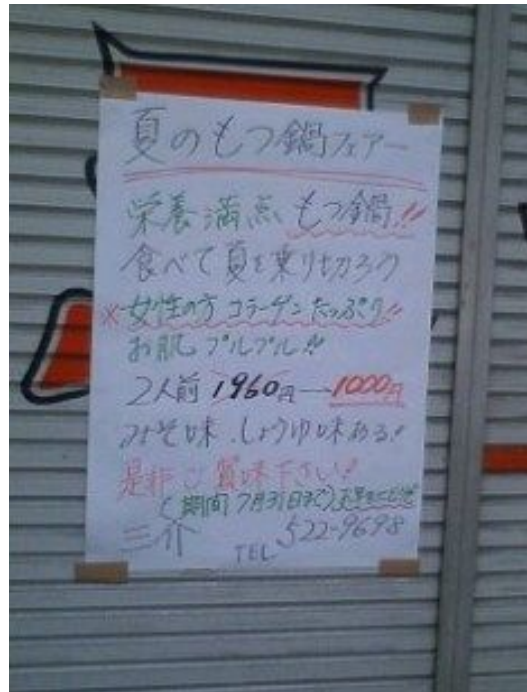 夏のもつ鍋フェアー
栄養満点 もつ鍋!!
食べて夏を乗り切ろう
※女性の方 コラーゲンたっぷり!!
お肌プルプル!!
2人前 1960円→1000円
みそ味、しょうゆ味ある!
是非ご賞味下さい!!
(期間7月31日まで)お早めにどうぞ
三介 TEL 522-9698